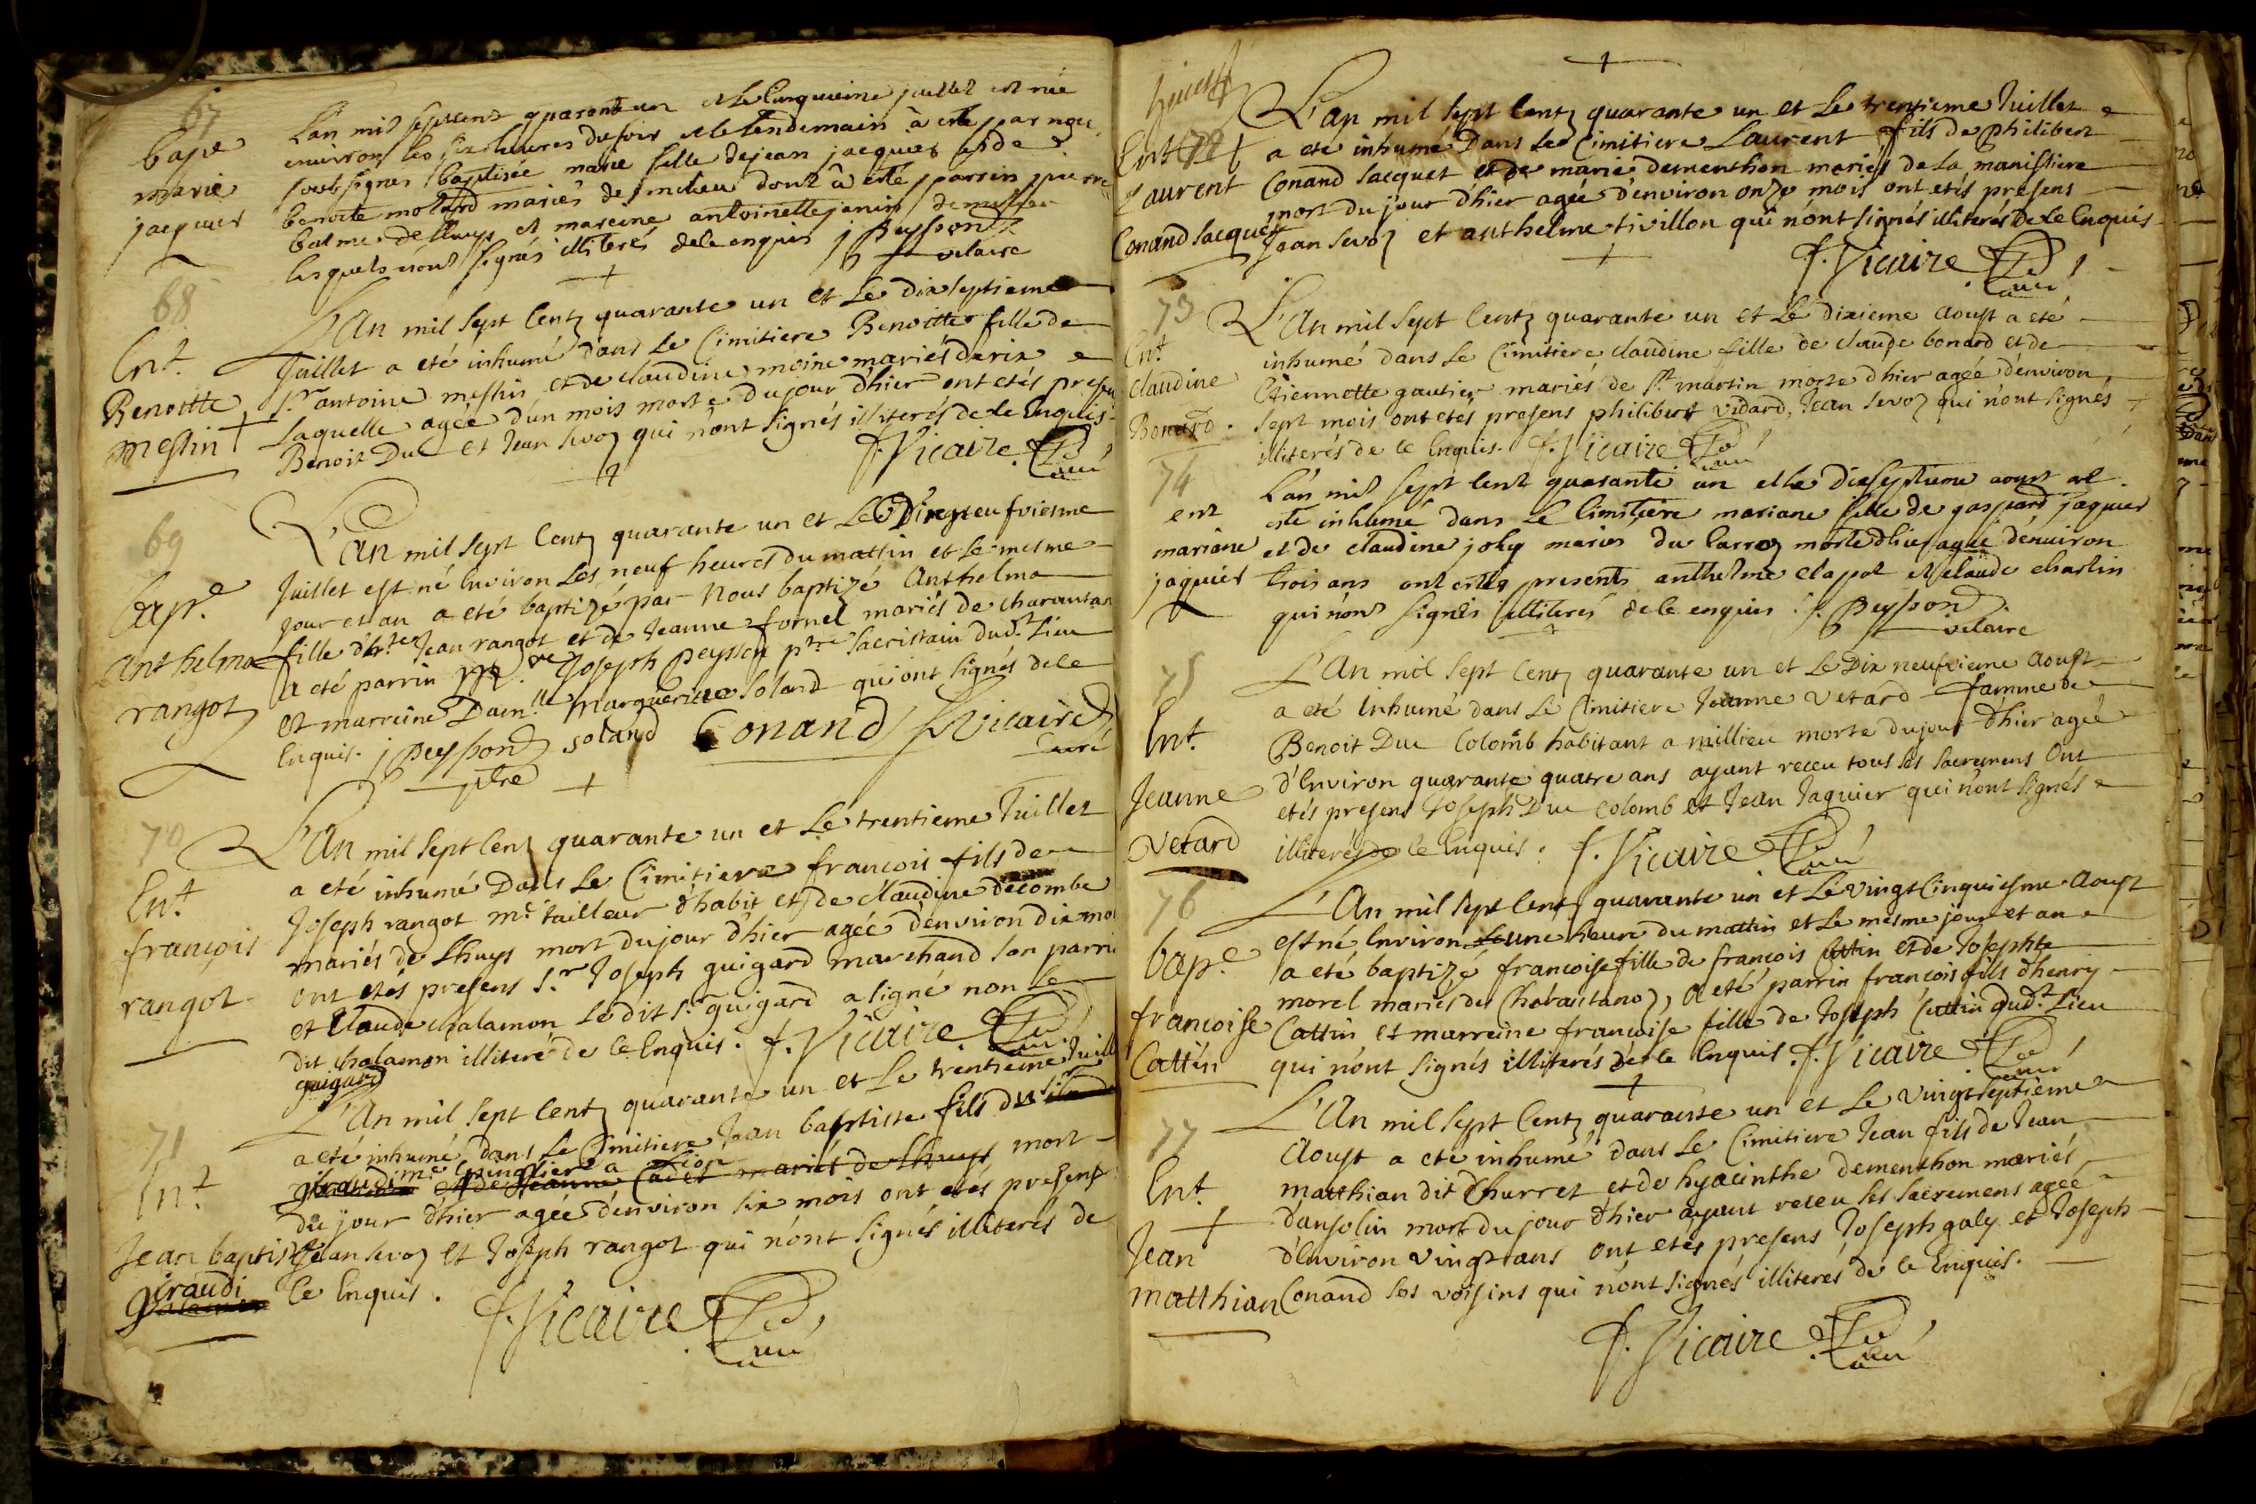 67
bap.e
marie
jacquier
Lan mil septcent quarante un et le cinquieme juillet est née
environ les six heures du soir et le lendemain à esté par nous
soubsignes baptisée marie fille de jean jacquier et de
benoite molard mariés de milieu dont à esté parrin pierre
balme de lhuys et mareine antoinette janin de milieu
lesquels n'ont signés illiterés de ce enquis j Peysson
vicaire
68
Ent.
Benoitte
messin
L'An mil sept Centz quarante un et Le dix septieme
Juillet a eté inhumé dans Le Cimitiere Benoitte fille de
s.r antoine messin et de claudine moine mariés de rix
Laquelle agée d'un mois morte du jour d'hier ont etés presens
Benoit Duc et Jean Sevoz qui n'ont signés illiterés de ce Enquis
f. Vicaire
Curé
69
bap.e
anthelma
rangot
L'An mil sept Centz quarante un et Le Vingneufviesme
Juillet est né Environ Les neuf heures du mattin et Le mesme
jour et an a eté baptizé par Nous baptizé Anthelma
fille d'h.te Jean rangot et de Jeanne fornel mariés de charantan
a eté parrin Joseph Peysson p.tre sacristain dud.t Lieu
et marreine Dam.lle Marguerite Soland qui ont signés de ce
Enquis. j Peysson soland Conand f Vicaire
p.tre Curé
70
Ent.
françois
rangot
L'An mil sept Centz quarante un et Le trentieme Juillet
a eté inhumé Dans Le Cimitiere françois fils de
Joseph rangot m.e tailleur d'habit et de claudine decombe
mariés de Lhuys mort du jour d'hier agée d'environ dix mois
ont etés presens S.r Joseph guigard marchand son parrin
et Claude chalamon Ledit S.r guigard a signé non Le
dit chalamon illiteré de ce Enquis. f. Vicaire
guigard Curé
71
Ent.
Jean baptiste
giraudi
L'An mil sept Centz quarante un et Le trentieme Juillet
a eté inhumé dans Le Cimitiere Jean baptiste fils du
giraudi m.e Epinglier a Lion
et de Jeanne Cadet mariés de Lhuys mort
du jour d'hier agée d'environ six mois ont etés presens
Jean Sevoz et Joseph rangot qui n'ont signés illiterés de
Ce Enquis. f. Vicaire
Curé
72
Ent.
Laurent
Conand Jacquet
L'an mil sept Centz quarante un et Le trentieme Juillet
a eté inhumé Dans Le Cimitiere Laurent fils de Philibert
Conand Jacquet et de marie dementhon mariés de La manissiere
mort du jour d'hier agée d'environ onze mois ont etés presens
Jean Sevoz et anthelme tivillon qui n'ont signés illiterés de Ce Enquis
f. Vicaire
Curé
73
Ent.
Claudine
Bonard.
L'An mil sept Centz quarante un et Le Dixieme Aoust a eté
inhumé dans Le Cimitiere claudine fille de claude bonard et de
Etiennette gautier mariés de S.t martin morte d'hier agée d'environ
sept mois ont etés presens philibert vidard, Jean Sevoz qui n'ont signés
illiterés de ce Enquis. f. Vicaire
Curé
74
ent
mariane
jaquier
L'an mil sept cent quarante un et le dixseptieme aoust at
esté inhumé dans Le Cimitiere mariane fille de gaspard jaquier
et de claudine joly mariés du Carroz morte d'hier agée d'environ
trois ans ont estés presents anthelme clapot et claude charlin
qui n'ont signés illiterés de ce enquis. j. Peysson
vicaire
75
Ent.
Jeanne
Vetard
L'An mil sept Centz quarante un et Le Dix neufvieme Aoust
a eté inhumé dans Le Cimitiere Jeanne Vetard famme de
Benoit Duc Colomb habitant a millieu morte du jour d'hier agée
d'Environ quarante quatre ans ayant receu tous les sacremens Ont
etés presens Joseph Duc Colomb et Jean Jaquier qui n'ont signés
illiterés de ce Enquis. f. Vicaire
Curé
76
bap.e
francoise
Cattin
L'An mil sept Centz quarante un et Le vingt Cinquiesme Aoust
est né Environ une heure du mattin et Le mesme jour et an
a eté baptizé francoise fille de françois Cattin et de Josephte
morel mariés de Charantanoz, A eté parrin françois fils d'henry
Cattin et marreine francoise fille de Joseph Cattin dud.t Lieu
qui n'ont signés illiterés de ce Enquis f. Vicaire
Curé
77
Ent.
Jean
matthian
L'An mil sept Centz quarante un et Le vingtseptieme
Aoust a eté inhumé dans Le Cimitiere Jean fils de Jean
matthian dit Churret et de hyacinthe dementhon mariés
d'ansolin mort du jour d'hier ayant receu ses sacremens agée
d'Environ Vingt ans ont etés presens Joseph galy et Joseph
Conand ses voisins qui n'ont signés illiterés de ce Enquis.
f. Vicaire
Curé